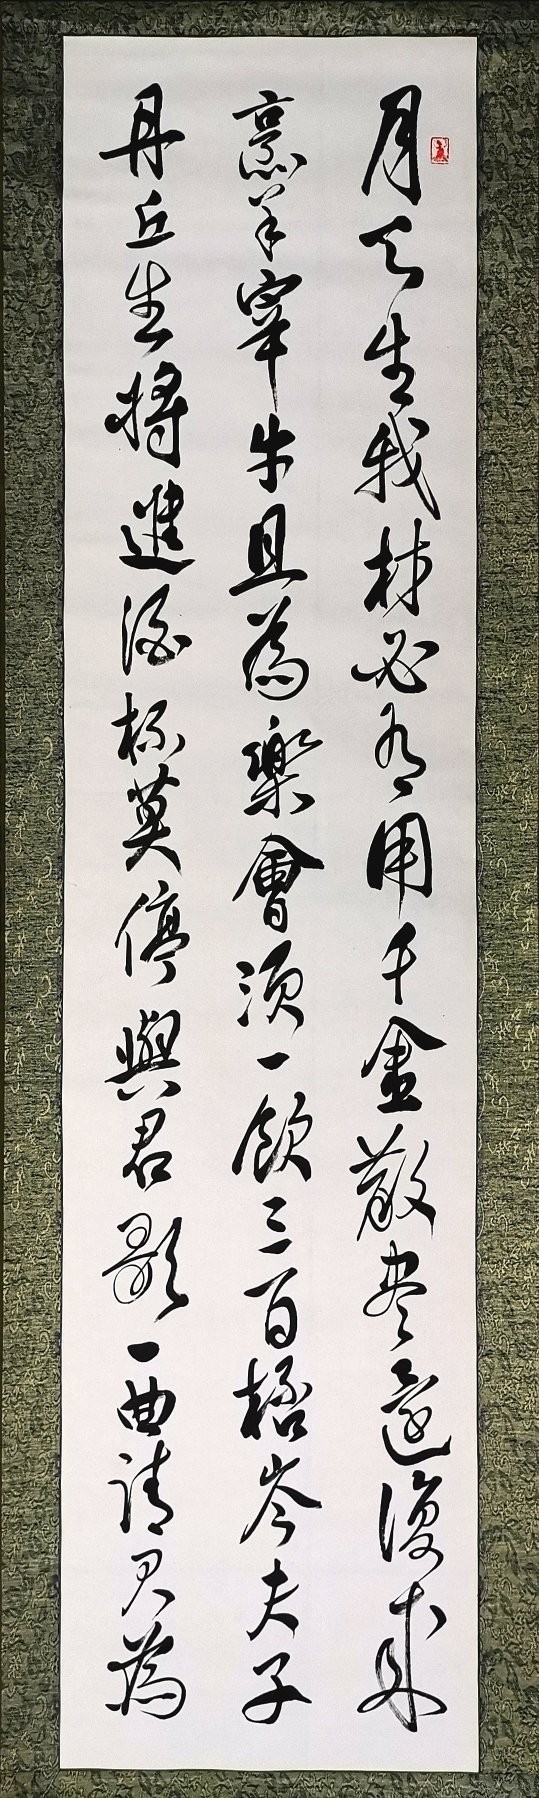 月天生我材必有用千金散盡還復來
烹羊宰牛且為樂會須一飲三百杯岑夫子
丹丘生將進酒杯莫停與君歌一曲請君為